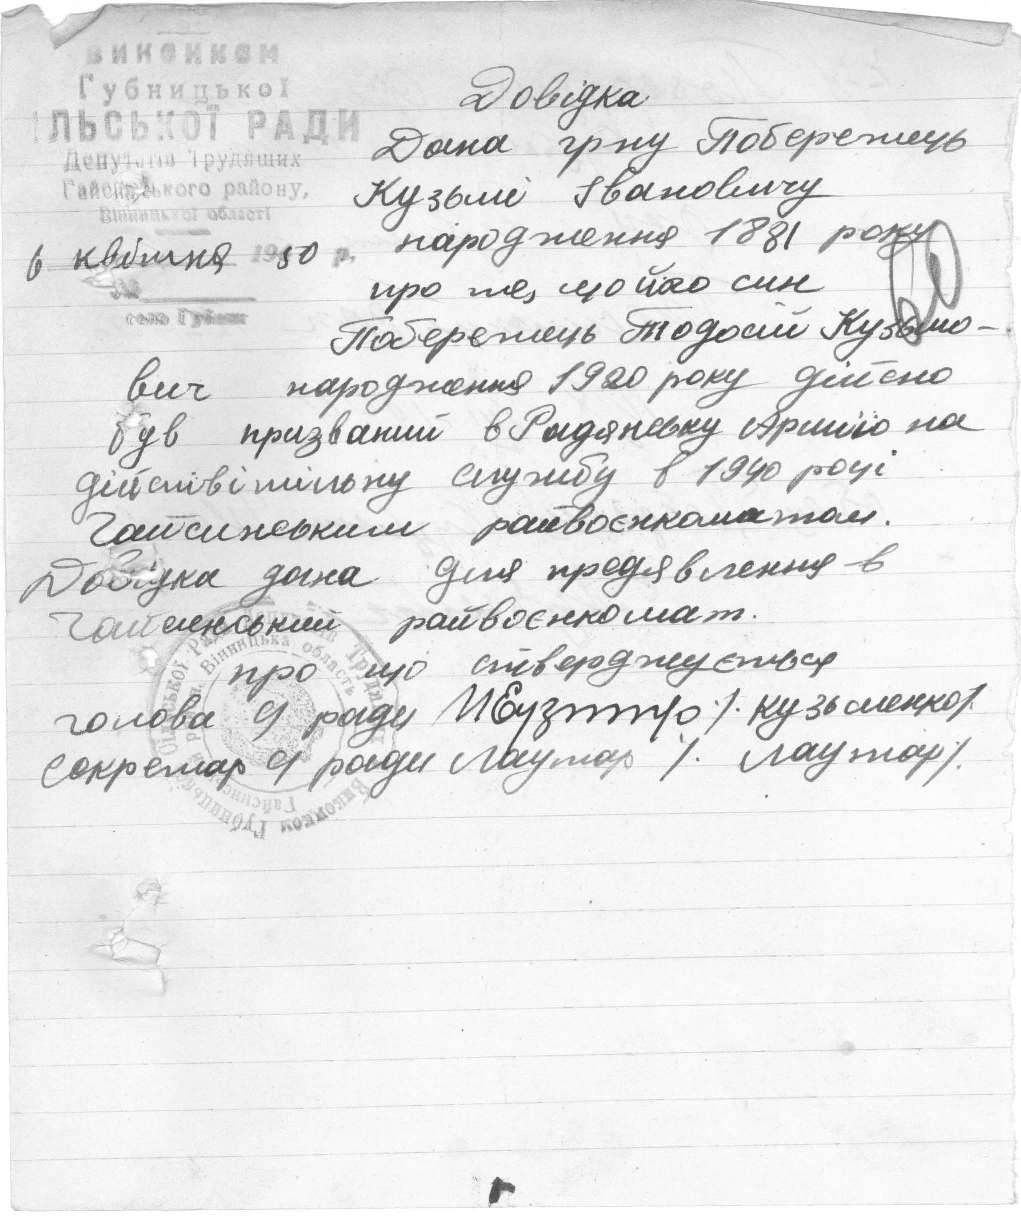 ВИКОНКОМ
Губницької
ІЛЬСЬКОЇ РАДИ
Депутатів Трудящих
Гайсинського району,
Вінницької області
6 квітня 1950 р.
№
село Губник
Довідка
Дана гр-ну Побережець
Кузьмі Івановичу
народження 1881 року
про те, що його син
Побережець Тодосій Кузьмо-
вич народження 1920 року дійсно
був призваний в Радянську Армію на
дійствітільну службу в 1940 році
Гайсинським райвоєнкоматом.
Довідка дана для предявлення в
Гайсинський райвоєнкомат.
про що стверджується
голова с/ ради /. Кузьменко/.
секретар с/ ради Лаутар /. Лаутар/.
Виконком Губницької Сільської Ради Депутатів Трудящих
Гайсинський р-н. Вінницька область